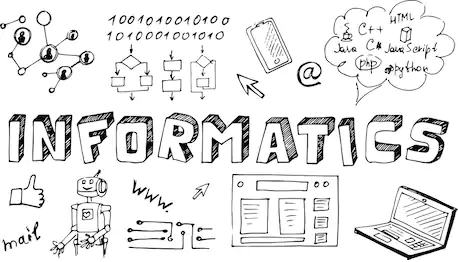 1010010100100
1010001001010
HTML
C++
Java C# JavaScript
php python
@
INFORMATICS
www.
mail